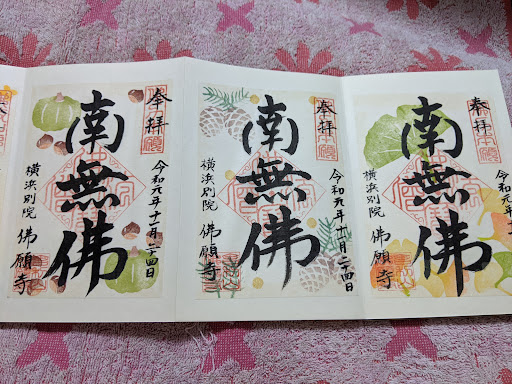 奉拝
令和元
南無佛
横浜別院 佛願寺
奉拝
令和元年十一月二十四日
南無佛
横浜別院 佛願寺
奉拝
令和元年十一月二十四日
南無佛
横浜別院 佛願寺